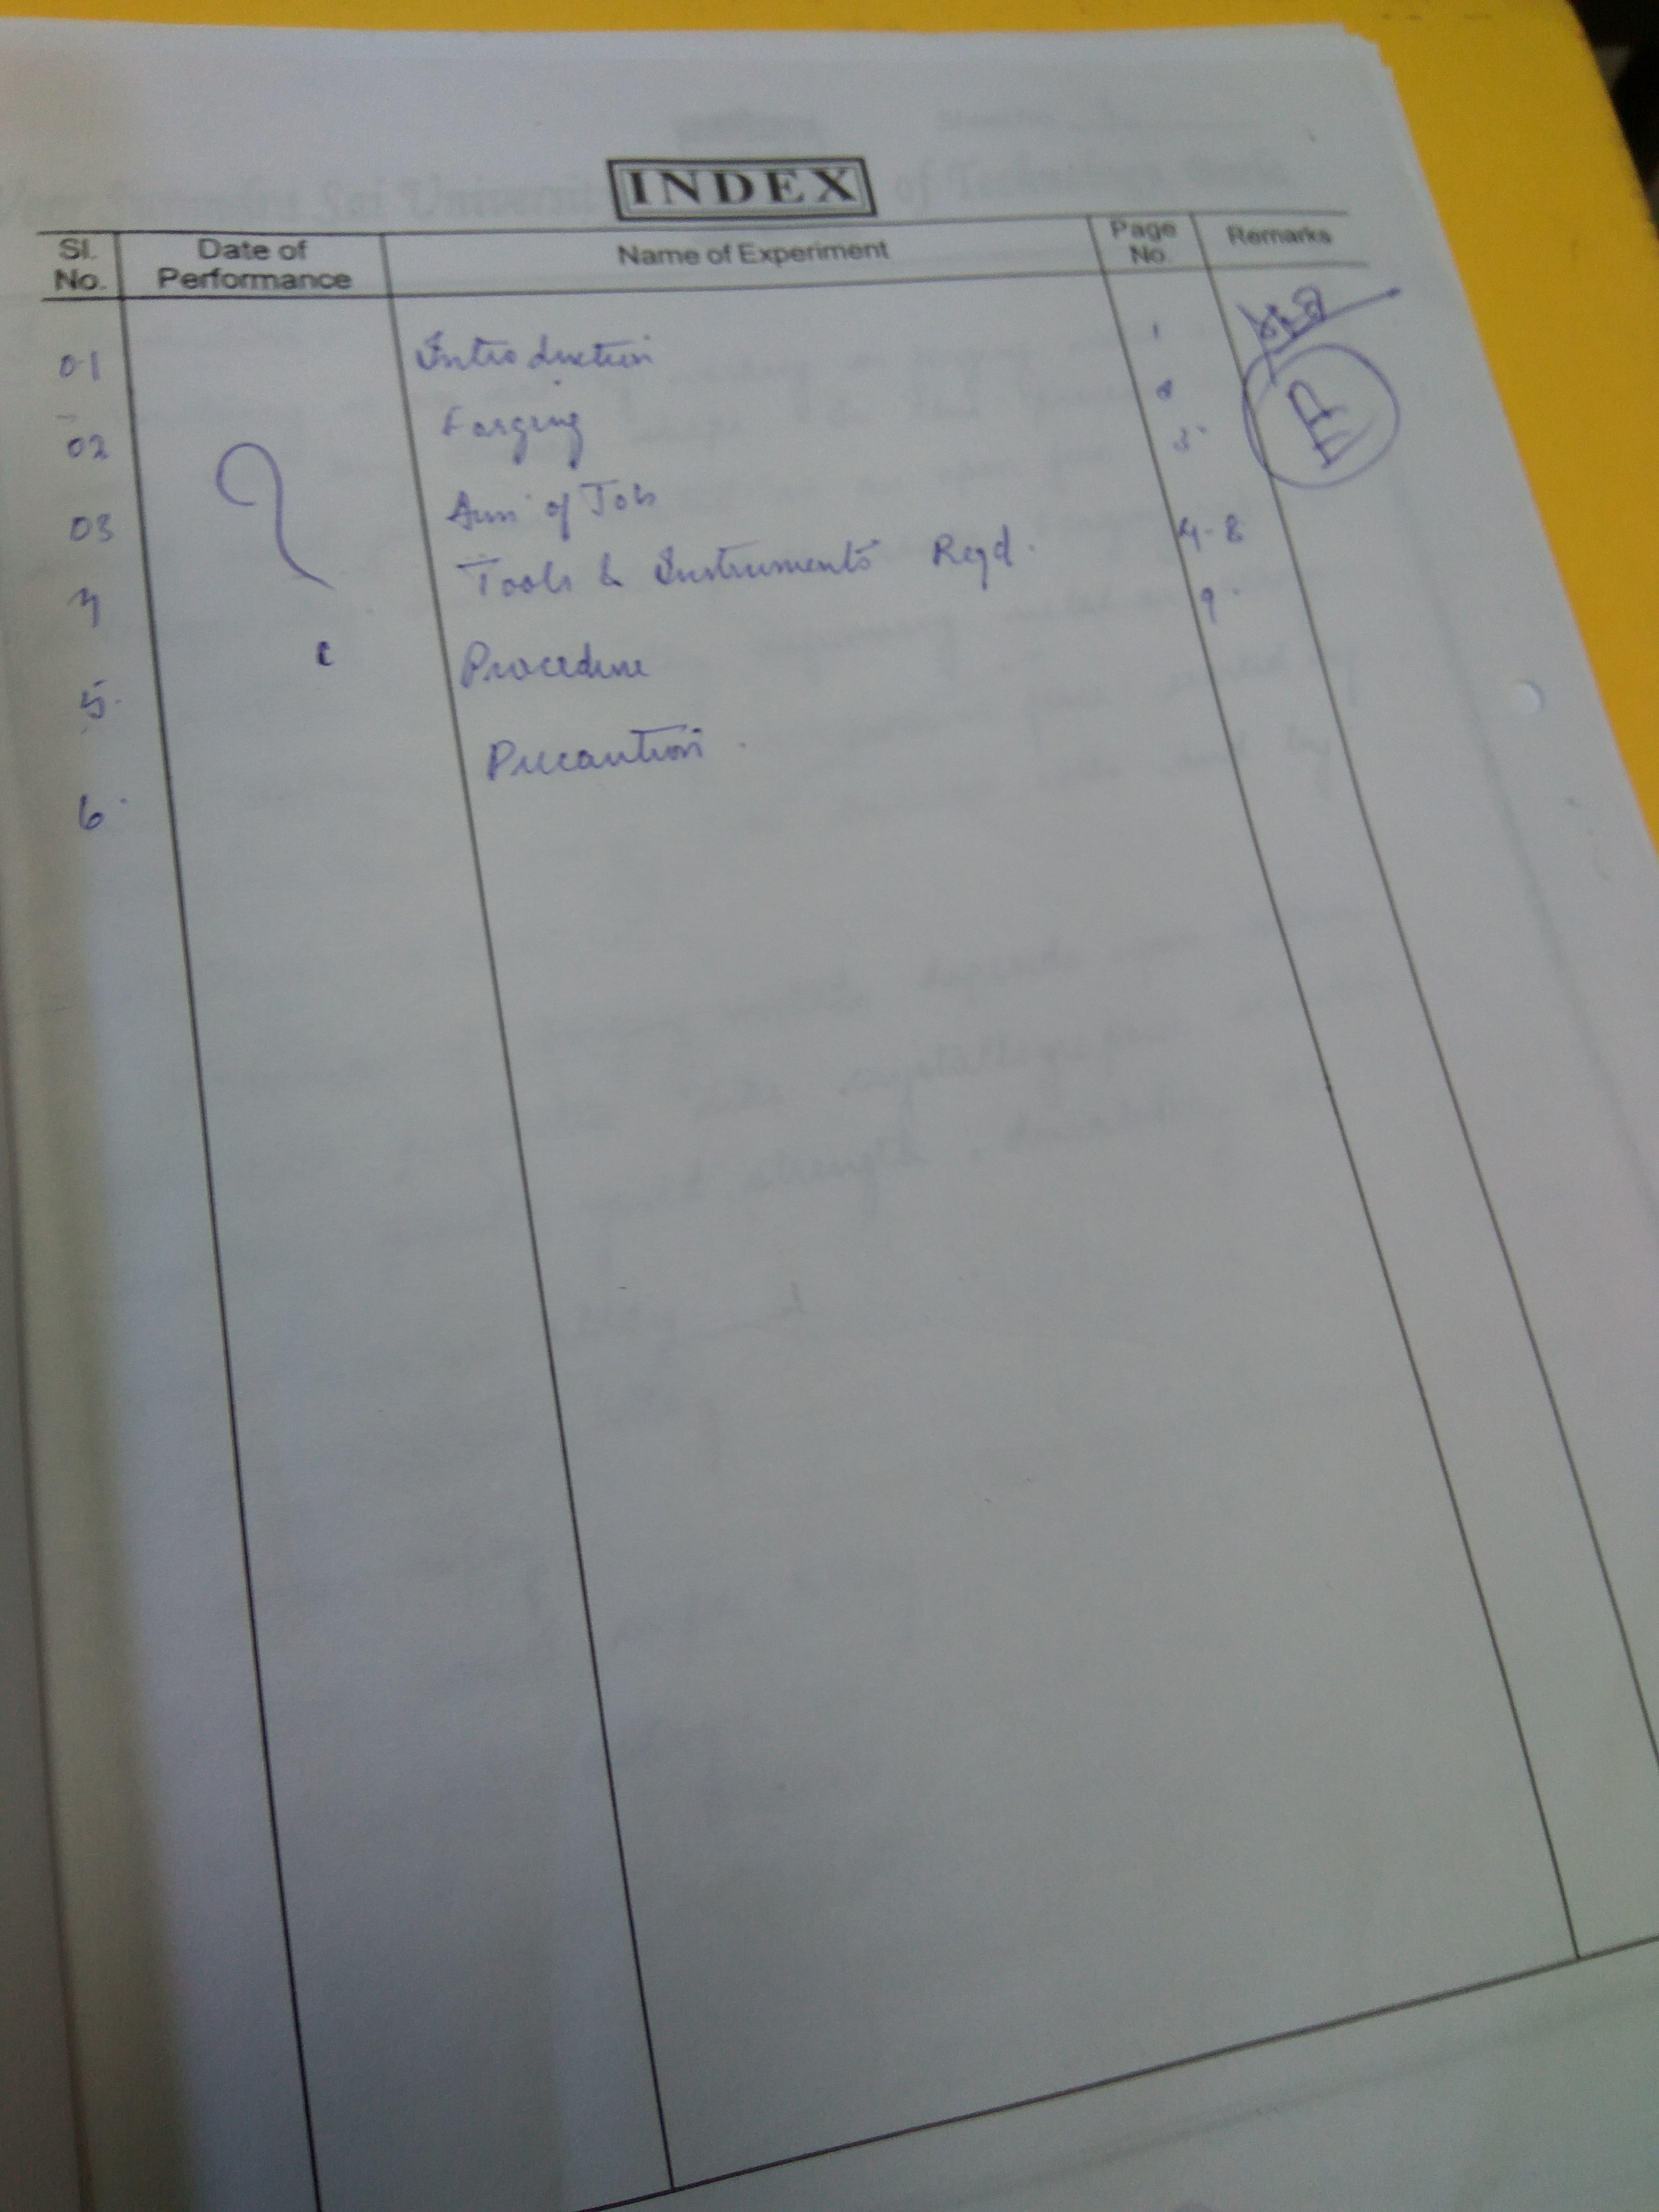 INDEX
Sl. No. Date of Performance Name of Experiment Page No. Remarks
01 Introduction 1
02 Forging 2
03 Aim of Job 3
4 Tools & Instruments Reqd. 4-8
5. Procedure 9.
6. Precaution.